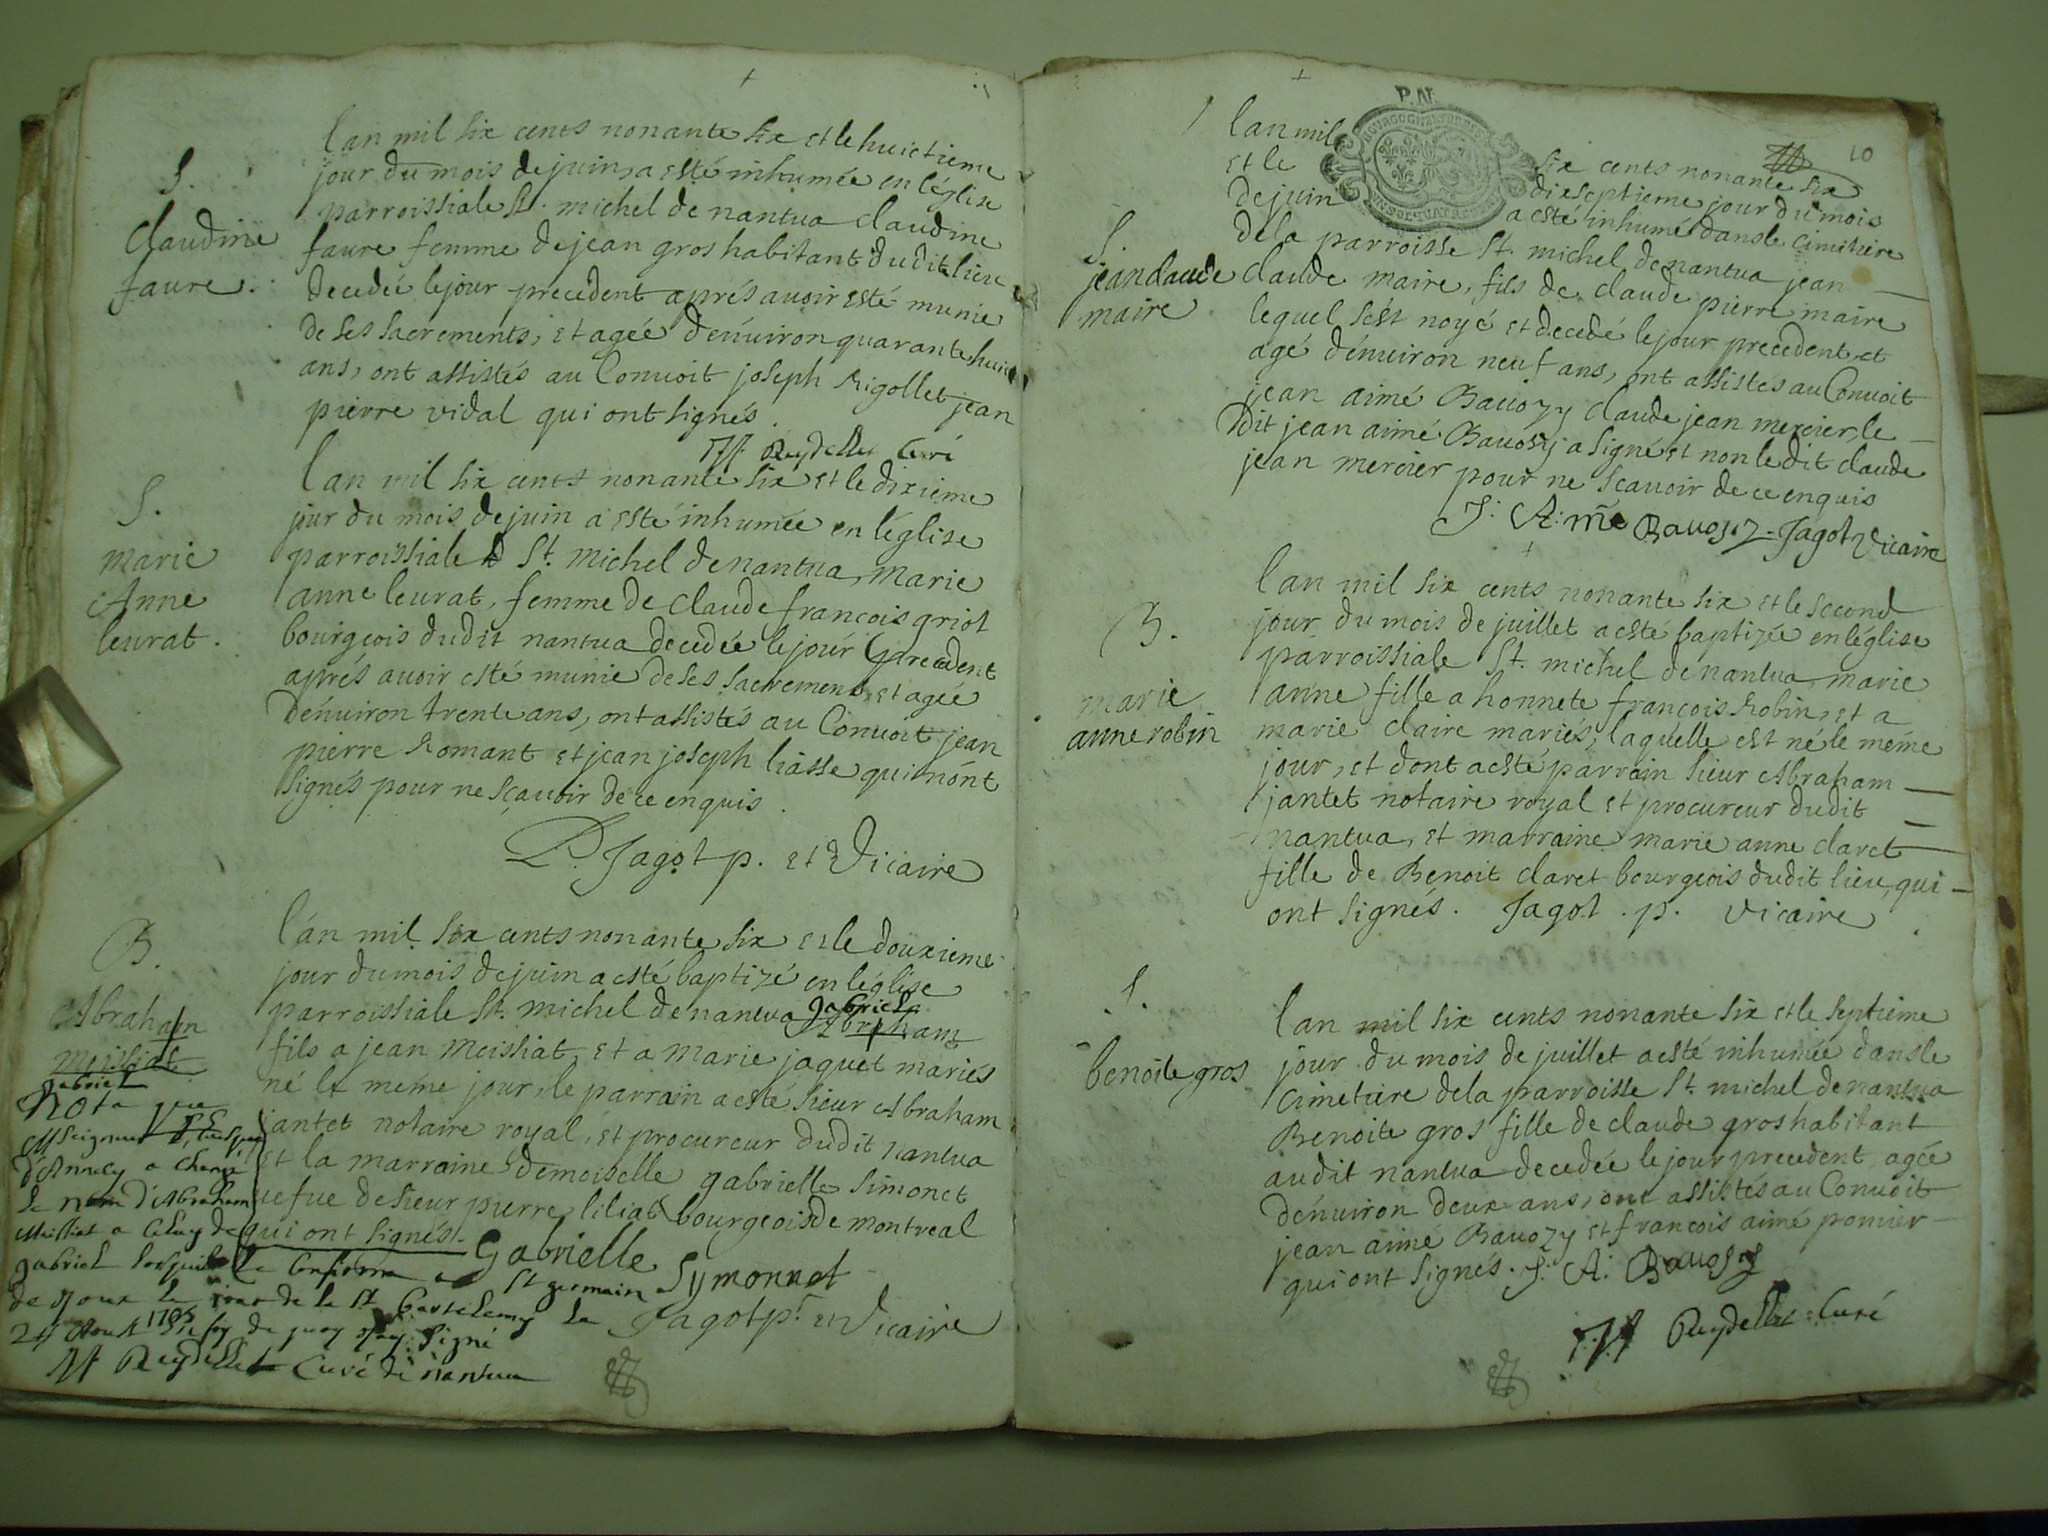 S.
Claudine
faure.
l'an mil six cents nonante six et le huictieme
jour du mois de juin, a esté inhumée en l'église
parroissiale St. michel de nantua Claudine
faure femme de jean gros habitant dudit lieu
decedée le jour precedent aprés avoir esté munie
de ses sacrements, et agée d'enuiron quarante huict
ans, ont assistés au Convoit joseph Rigollet jean
pierre vidal qui ont signés.
Reydellet Curé
S.
marie
Anne
leurat.
l'an mil six cents nonante six et le dixieme
jour du mois de juin a esté inhumée en l'église
parroissiale St. michel de nantua, marie
anne leurat, femme de claude francois griot
bourgeois dudit nantua decedée le jour precedent
aprés auoir esté munie de ses sacrements et agée
d'enuiron trente ans, ont assistés au Convoit jean
pierre Romant et jean joseph liasse qui n'ont
signés pour ne sçauoir de ce enquis.
Jagot p. et Vicaire
B.
Abraham
Meissiat
gabriel
l'an mil six cents nonante six et le douzieme
jour du mois de juin a esté baptizé en l'église
parroissiale St. michel de nantua gabriel
Abraham
fils a jean Meissiat, et a Marie jaquet mariés
né le méme jour, le parrain a esté sieur Abraham
jantet notaire royal, et procureur dudit nantua
et la marraine demoiselle gabrielle simonet
uefue de sieur pierre liliat bourgeois de montreal
qui ont signés.
Gabrielle
Symonnet
Jagot pr. et Vicaire
Nota que
Mseigneur
d'Annecy a changé
le nom d'Abraham
Meissiat a celuy de
gabriel
St germain
de joux le jour de la St Bartelemy le
24 Aout 1705 en foy de quoy j'ay signé
Reydellet Curé de nantua
P. AP.
10
S.
jean claude
maire
l'an mil six cents nonante six
et le dixseptieme jour du mois
de juin a esté inhumé dans le cimetiere
de la parroisse St. michel de nantua jean
claude maire, fils de claude pierre maire
lequel s'est noyé et decedé le jour precedent et
agé d'enuiron neuf ans, ont assistés au Convoit
jean aimé Bauozy claude jean mercier, le
dit jean aimé Bauozy a signé et non ledit claude
jean mercier pour ne scauoir de ce enquis
J. A. mé Bauozy. Jagot Vicaire
B.
marie
anne robin
l'an mil six cents nonante six et le second
jour du mois de juillet a esté baptizée en l'église
parroissiale St. michel de nantua, marie
anne fille a honnete françois Robin, et a
marie claire mariés, laquelle est né le méme
jour, et dont a esté parrain sieur Abraham
jantet notaire royal et procureur dudit
nantua, et marraine marie anne claret
fille de Benoit claret bourgeois dudit lieu, qui
ont signés. Jagot. p. vicaire
S.
benoite gros
l'an mil six cents nonante six et le septieme
jour du mois de juillet a esté inhumée dans le
cimetiere de la parroisse St. michel de nantua
Benoite gros fille de claude gros habitant
audit nantua decedée le jour precedent, agée
d'enuiron deux ans, ont assistés au Convoit
jean aimé Bauozy et francois aimé ponier
qui ont signés. J. A. Bauozy
Reydellet Curé